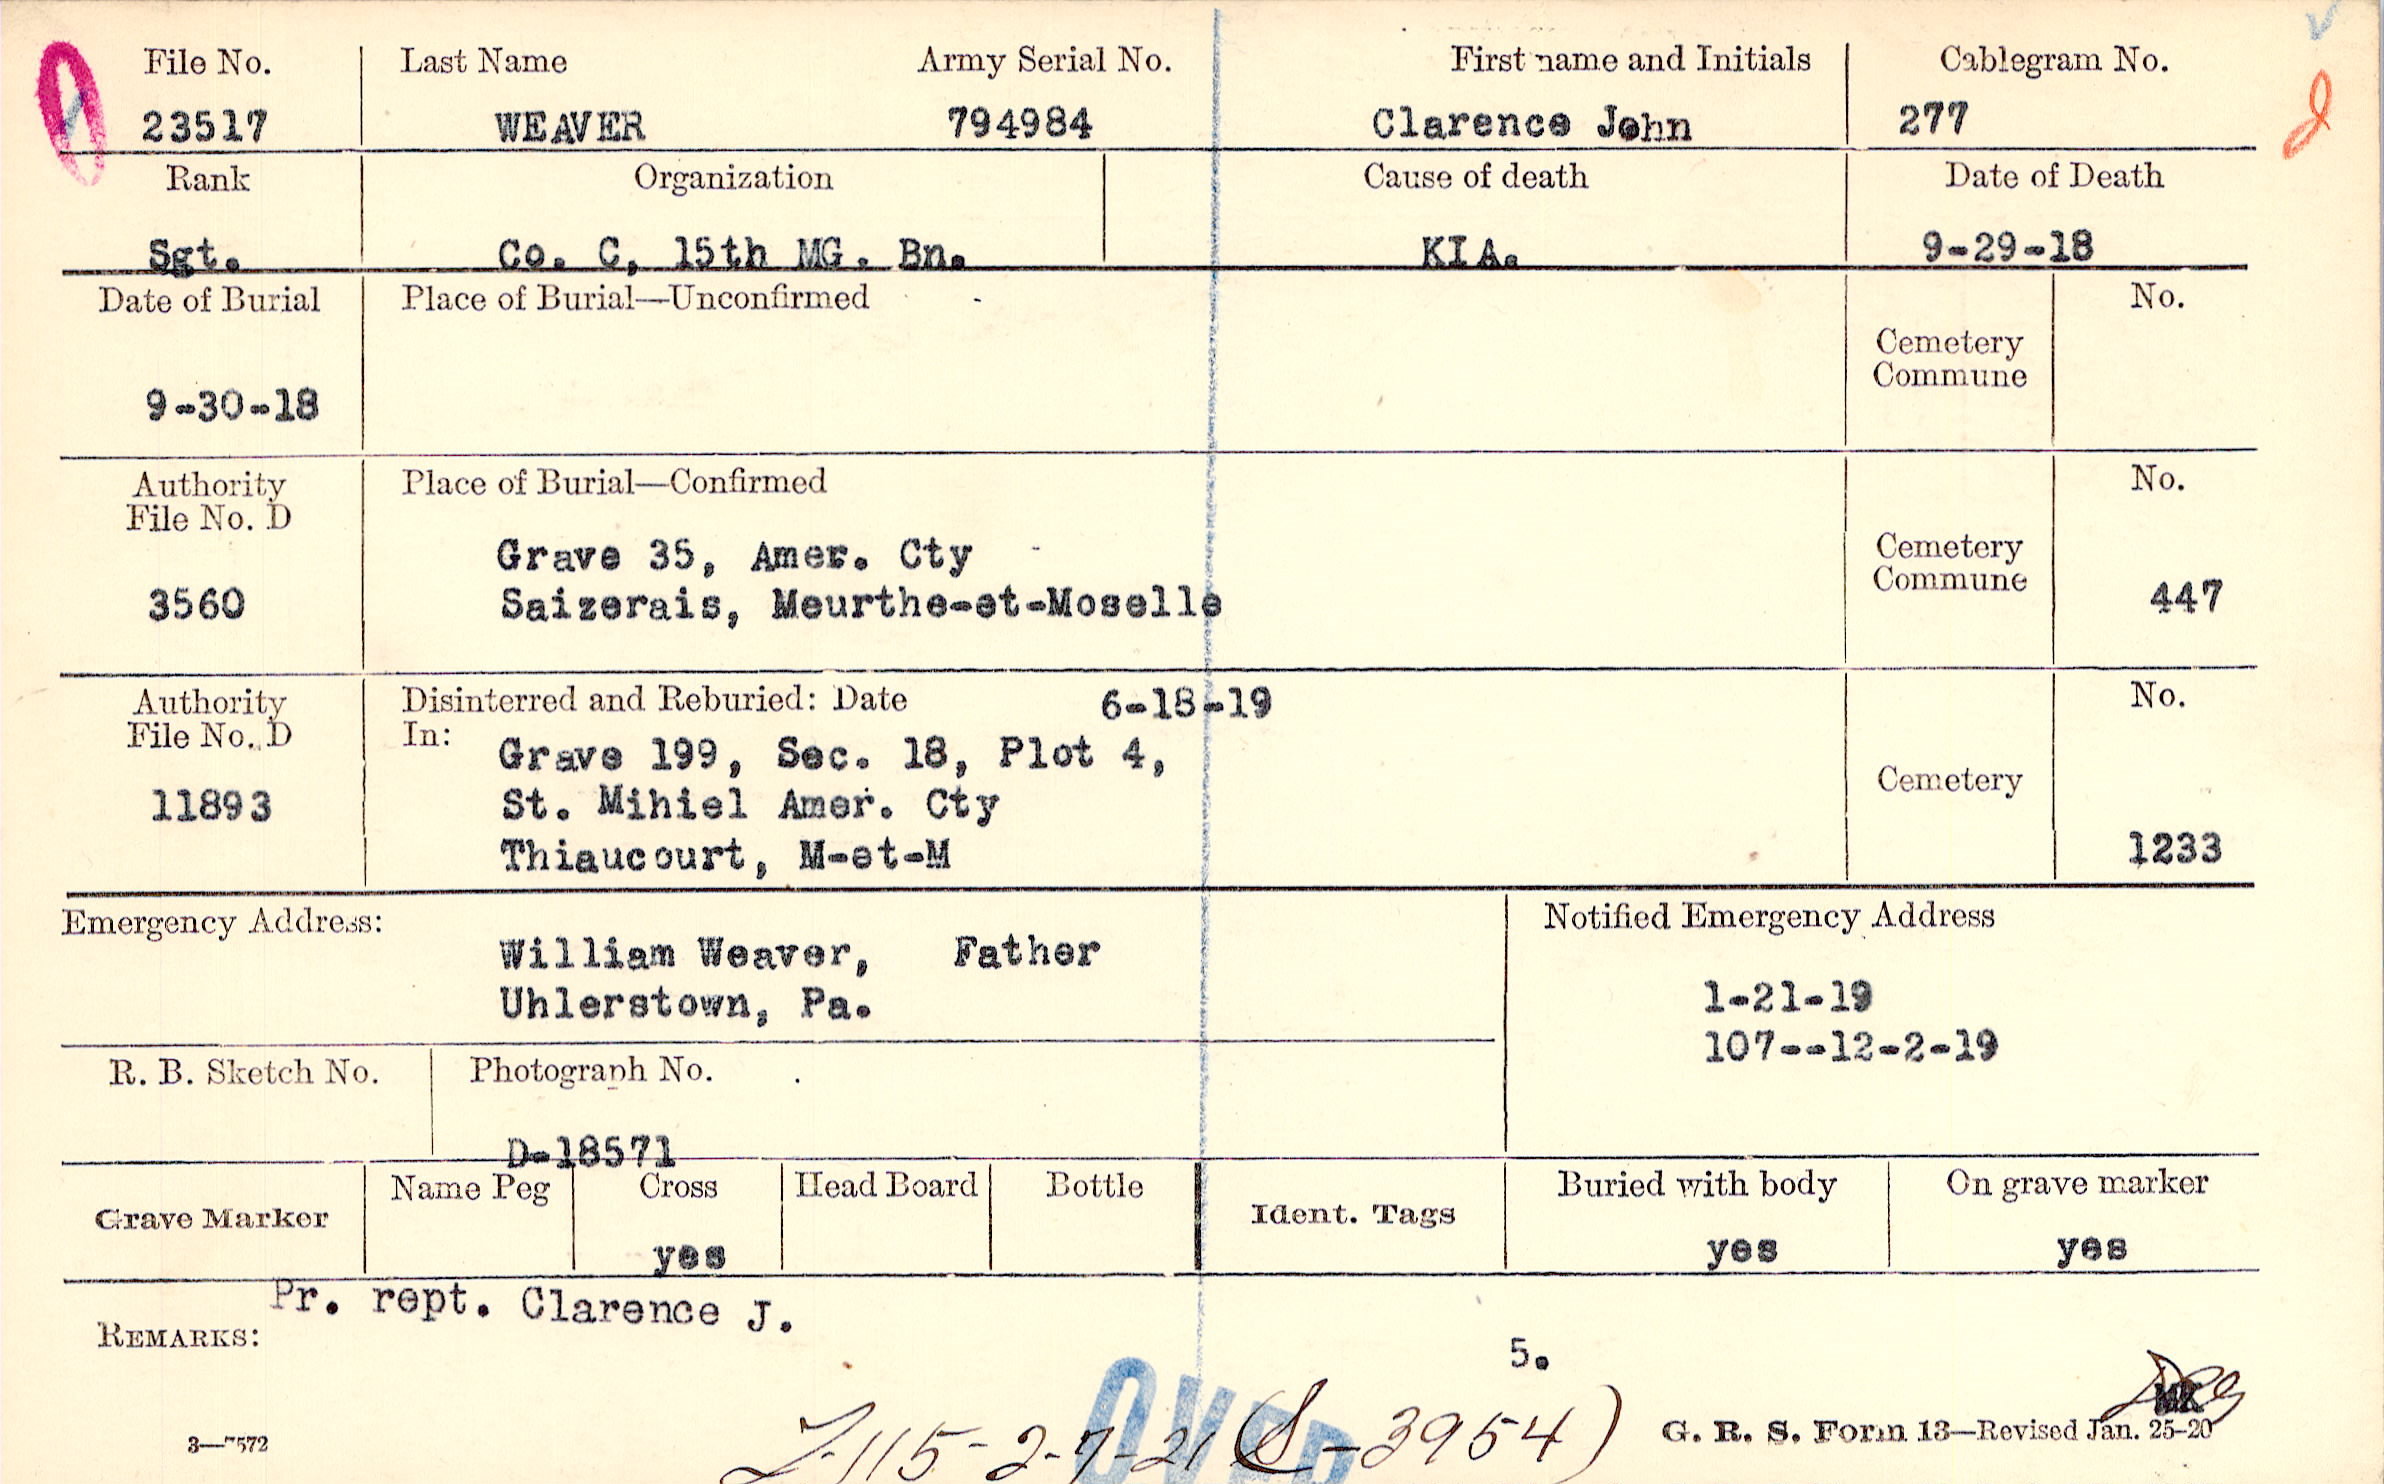 File No. Last Name Army Serial No. First name and Initials Cablegram No.
23517 WEAVER 794984 Clarence John 277
Rank Organization Cause of death Date of Death
Sgt. Co. C, 15th MG. Bn. KIA. 9-29-18
Date of Burial Place of Burial—Unconfirmed No.
Cemetery
Commune
9-30-18
Authority Place of Burial—Confirmed No.
File No. D
Grave 35, Amer. Cty Cemetery
3560 Saizerais, Meurthe-et-Moselle Commune 447
Authority Disinterred and Reburied: Date 6-18-19 No.
File No. D In:
Grave 199, Sec. 18, Plot 4,
11893 St. Mihiel Amer. Cty Cemetery
Thiaucourt, M-et-M 1233
Emergency Address: Notified Emergency Address
William Weaver, Father
Uhlerstown, Pa. 1-21-19
107--12-2-19
R. B. Sketch No. Photograph No.
D-18571
Grave Marker Name Peg Cross Head Board Bottle Ident. Tags Buried with body On grave marker
yes yes yes
Pr. rept. Clarence J.
REMARKS:
5.
OVER
115-2-7-21 (S-3954)
3—7572 G. R. S. Form 13—Revised Jan. 25-20